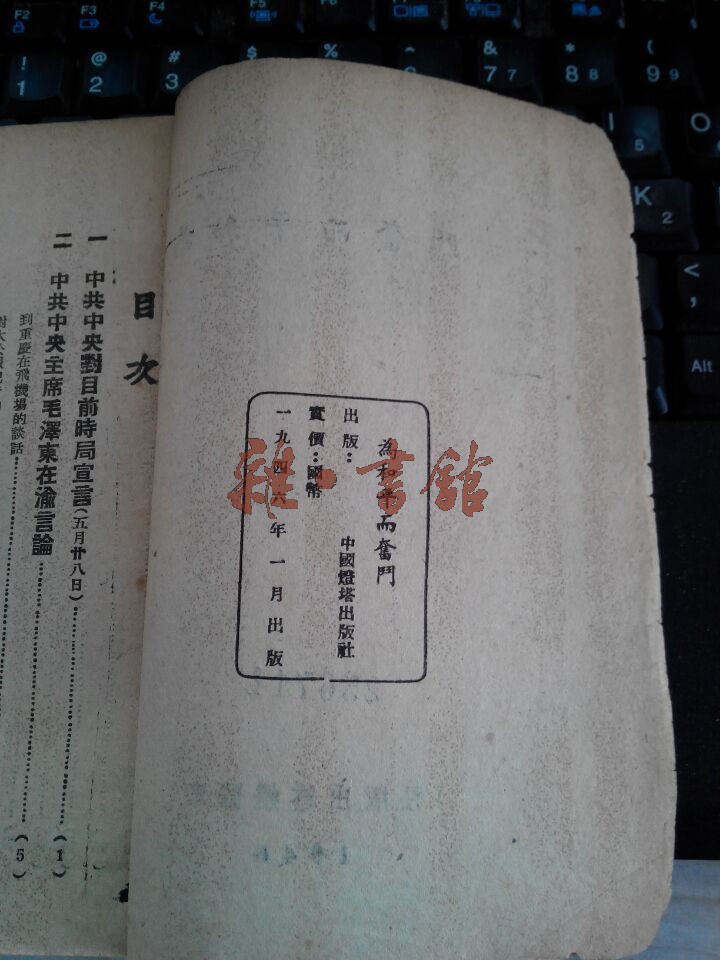 為和平而奮鬥
出版：中國燈塔出版社
實價：國幣
一九四六年一月出版
雜·書館
目次
一 中共中央對目前時局宣言(五月廿八日)………(1)
二 中共中央主席毛澤東在渝言論………(5)
到重慶在飛機場的談話………
F2
F3
F4
F5
F6
F7
F8
! 1
@ 2
# 3
$
%
^
& 7 7
* 8 8
( 9 9
I 5
O
K 2
< ,
Alt